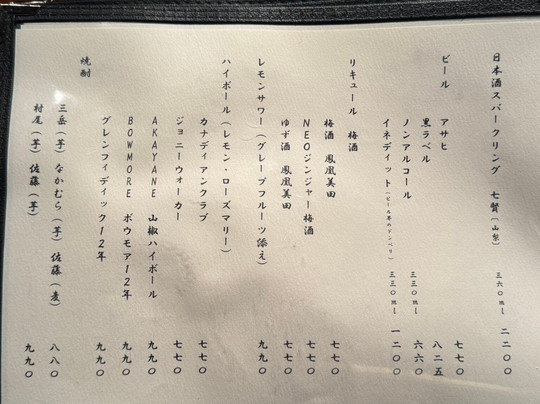 日本酒スパークリング 七賢(山梨) 三六〇ml 二二〇〇
ビール アサヒ 七七〇
黒ラベル 八二五
ノンアルコール 三三〇ml 六六〇
イネディット(ビール界のドンペリ) 三三〇ml 一二〇〇
リキュール 梅酒
梅酒 鳳凰美田 七七〇
NEOジンジャー梅酒 七七〇
ゆず酒 鳳凰美田 七七〇
レモンサワー(グレープフルーツ添え) 九九〇
ハイボール(レモン・ローズマリー)
カナディアンクラブ 七七〇
ジョニーウォーカー 七七〇
AKAYANE 山椒ハイボール 九九〇
BOWMORE ボウモア12年 九九〇
グレンフィディック12年 九九〇
焼酎
三岳(芋) なかむら(芋) 佐藤(麦) 八八〇
村尾(芋) 佐藤(芋) 九九〇